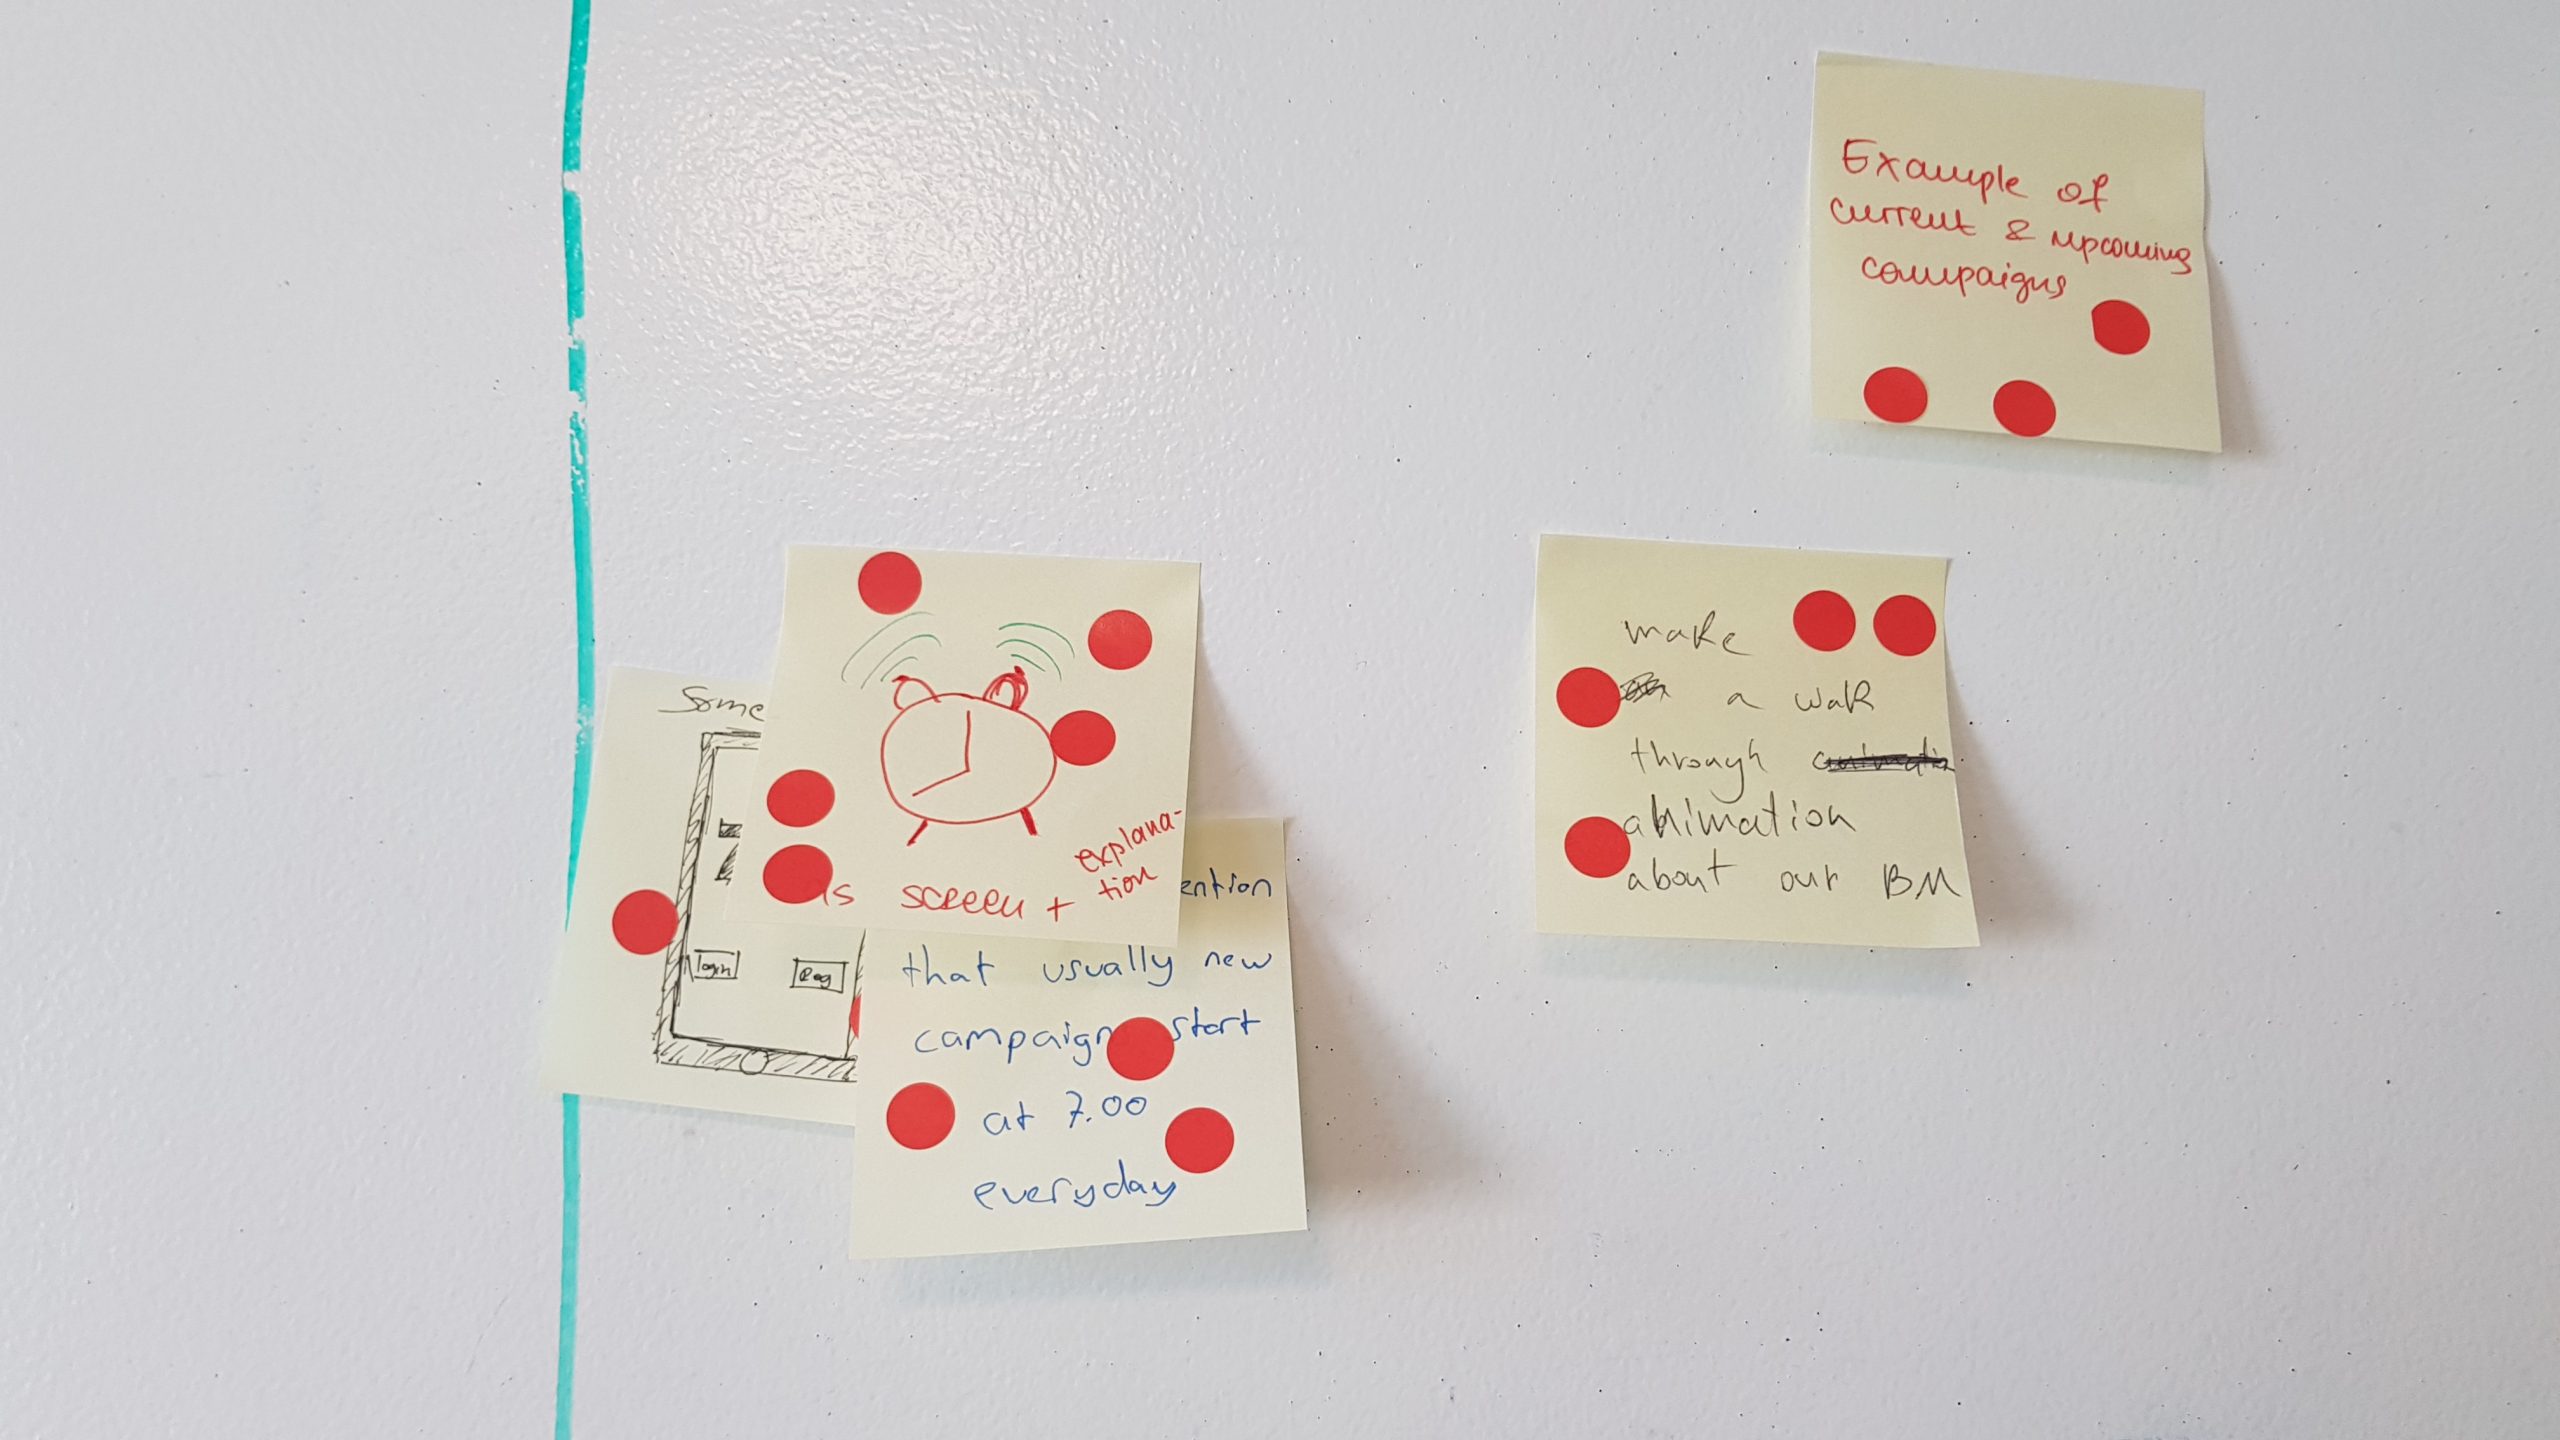 Example of
current & upcoming
campaigns
make
a walk
through
animation
about our BM
Some
login
Reg
as screen + explana-
tion
ention
that usually new
campaign start
at 7.00
everyday